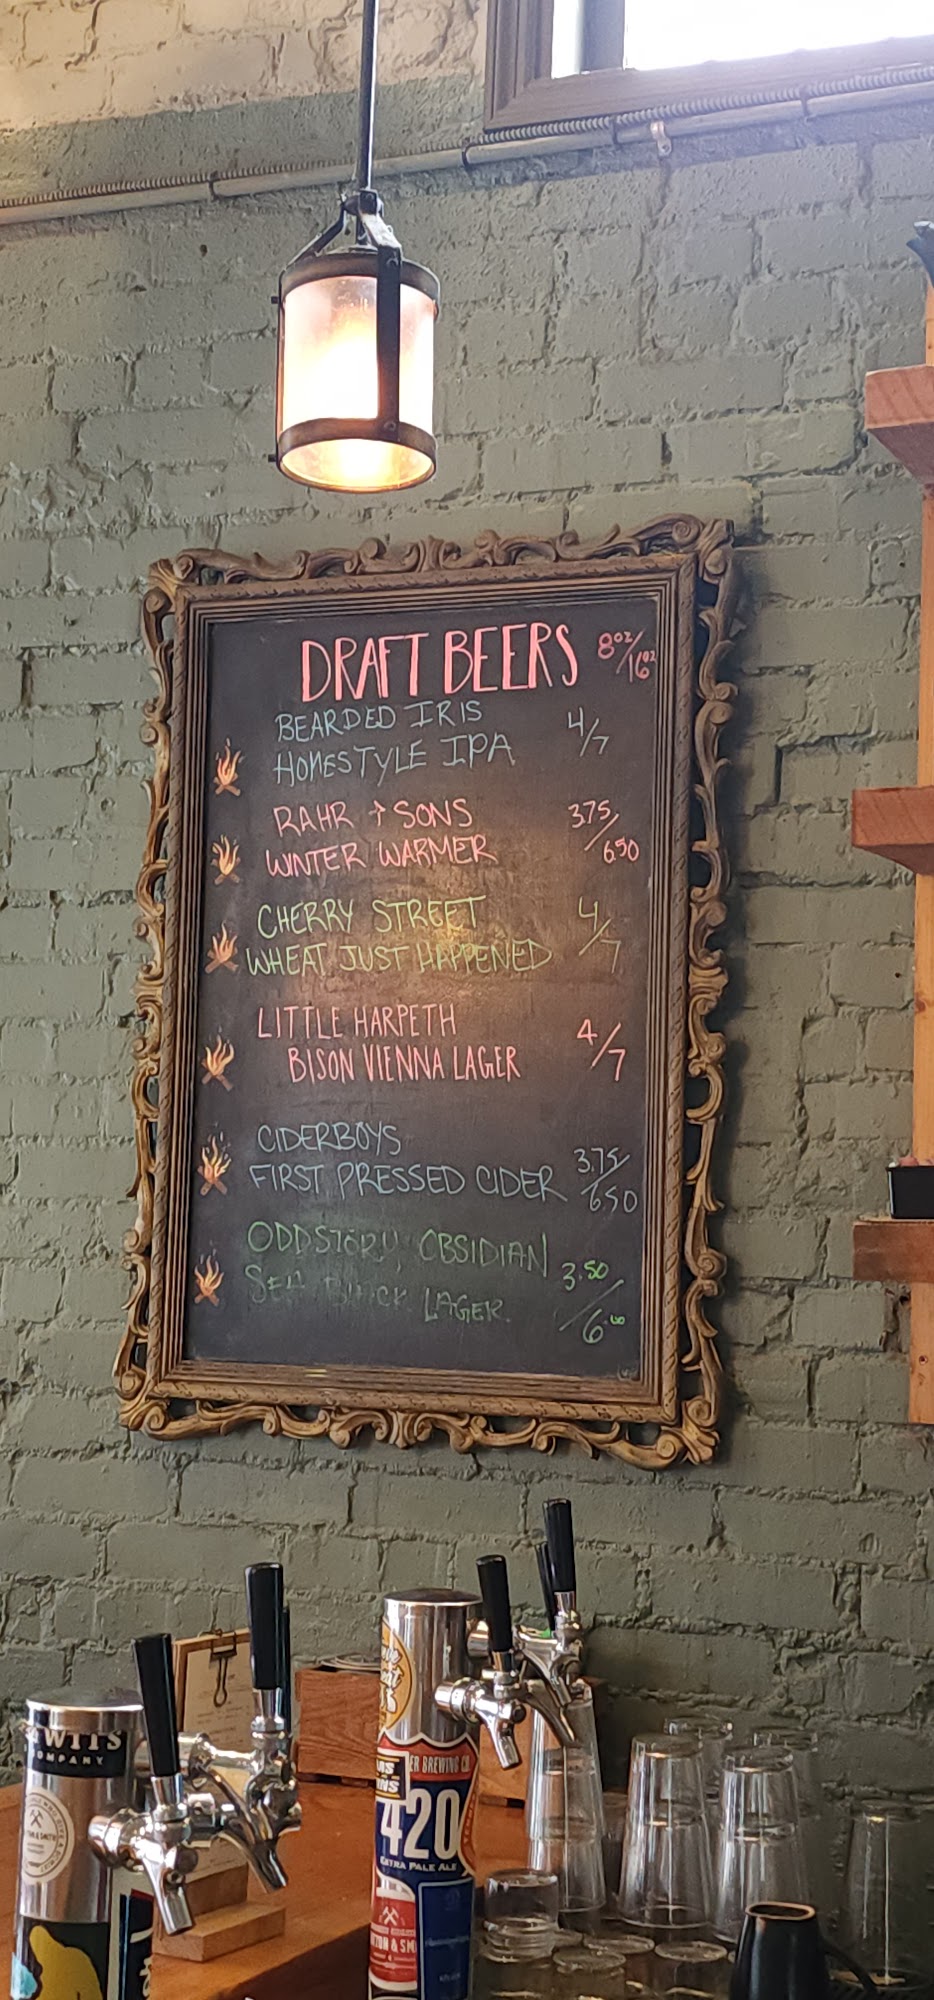 DRAFT BEERS 8oz/16oz
BEARDED IRIS
HOMESTYLE IPA 4/7
RAHR + SONS
WINTER WARMER 3.75/6.50
CHERRY STREET
WHEAT JUST HAPPENED 4/7
LITTLE HARPETH
BISON VIENNA LAGER 4/7
CIDERBOYS
FIRST PRESSED CIDER 3.75/6.50
ODDSTORY OBSIDIAN
LAGER. 3.50/6.00
WITS
COMPANY
ER BREWING CO
420
EXTRA PALE ALE